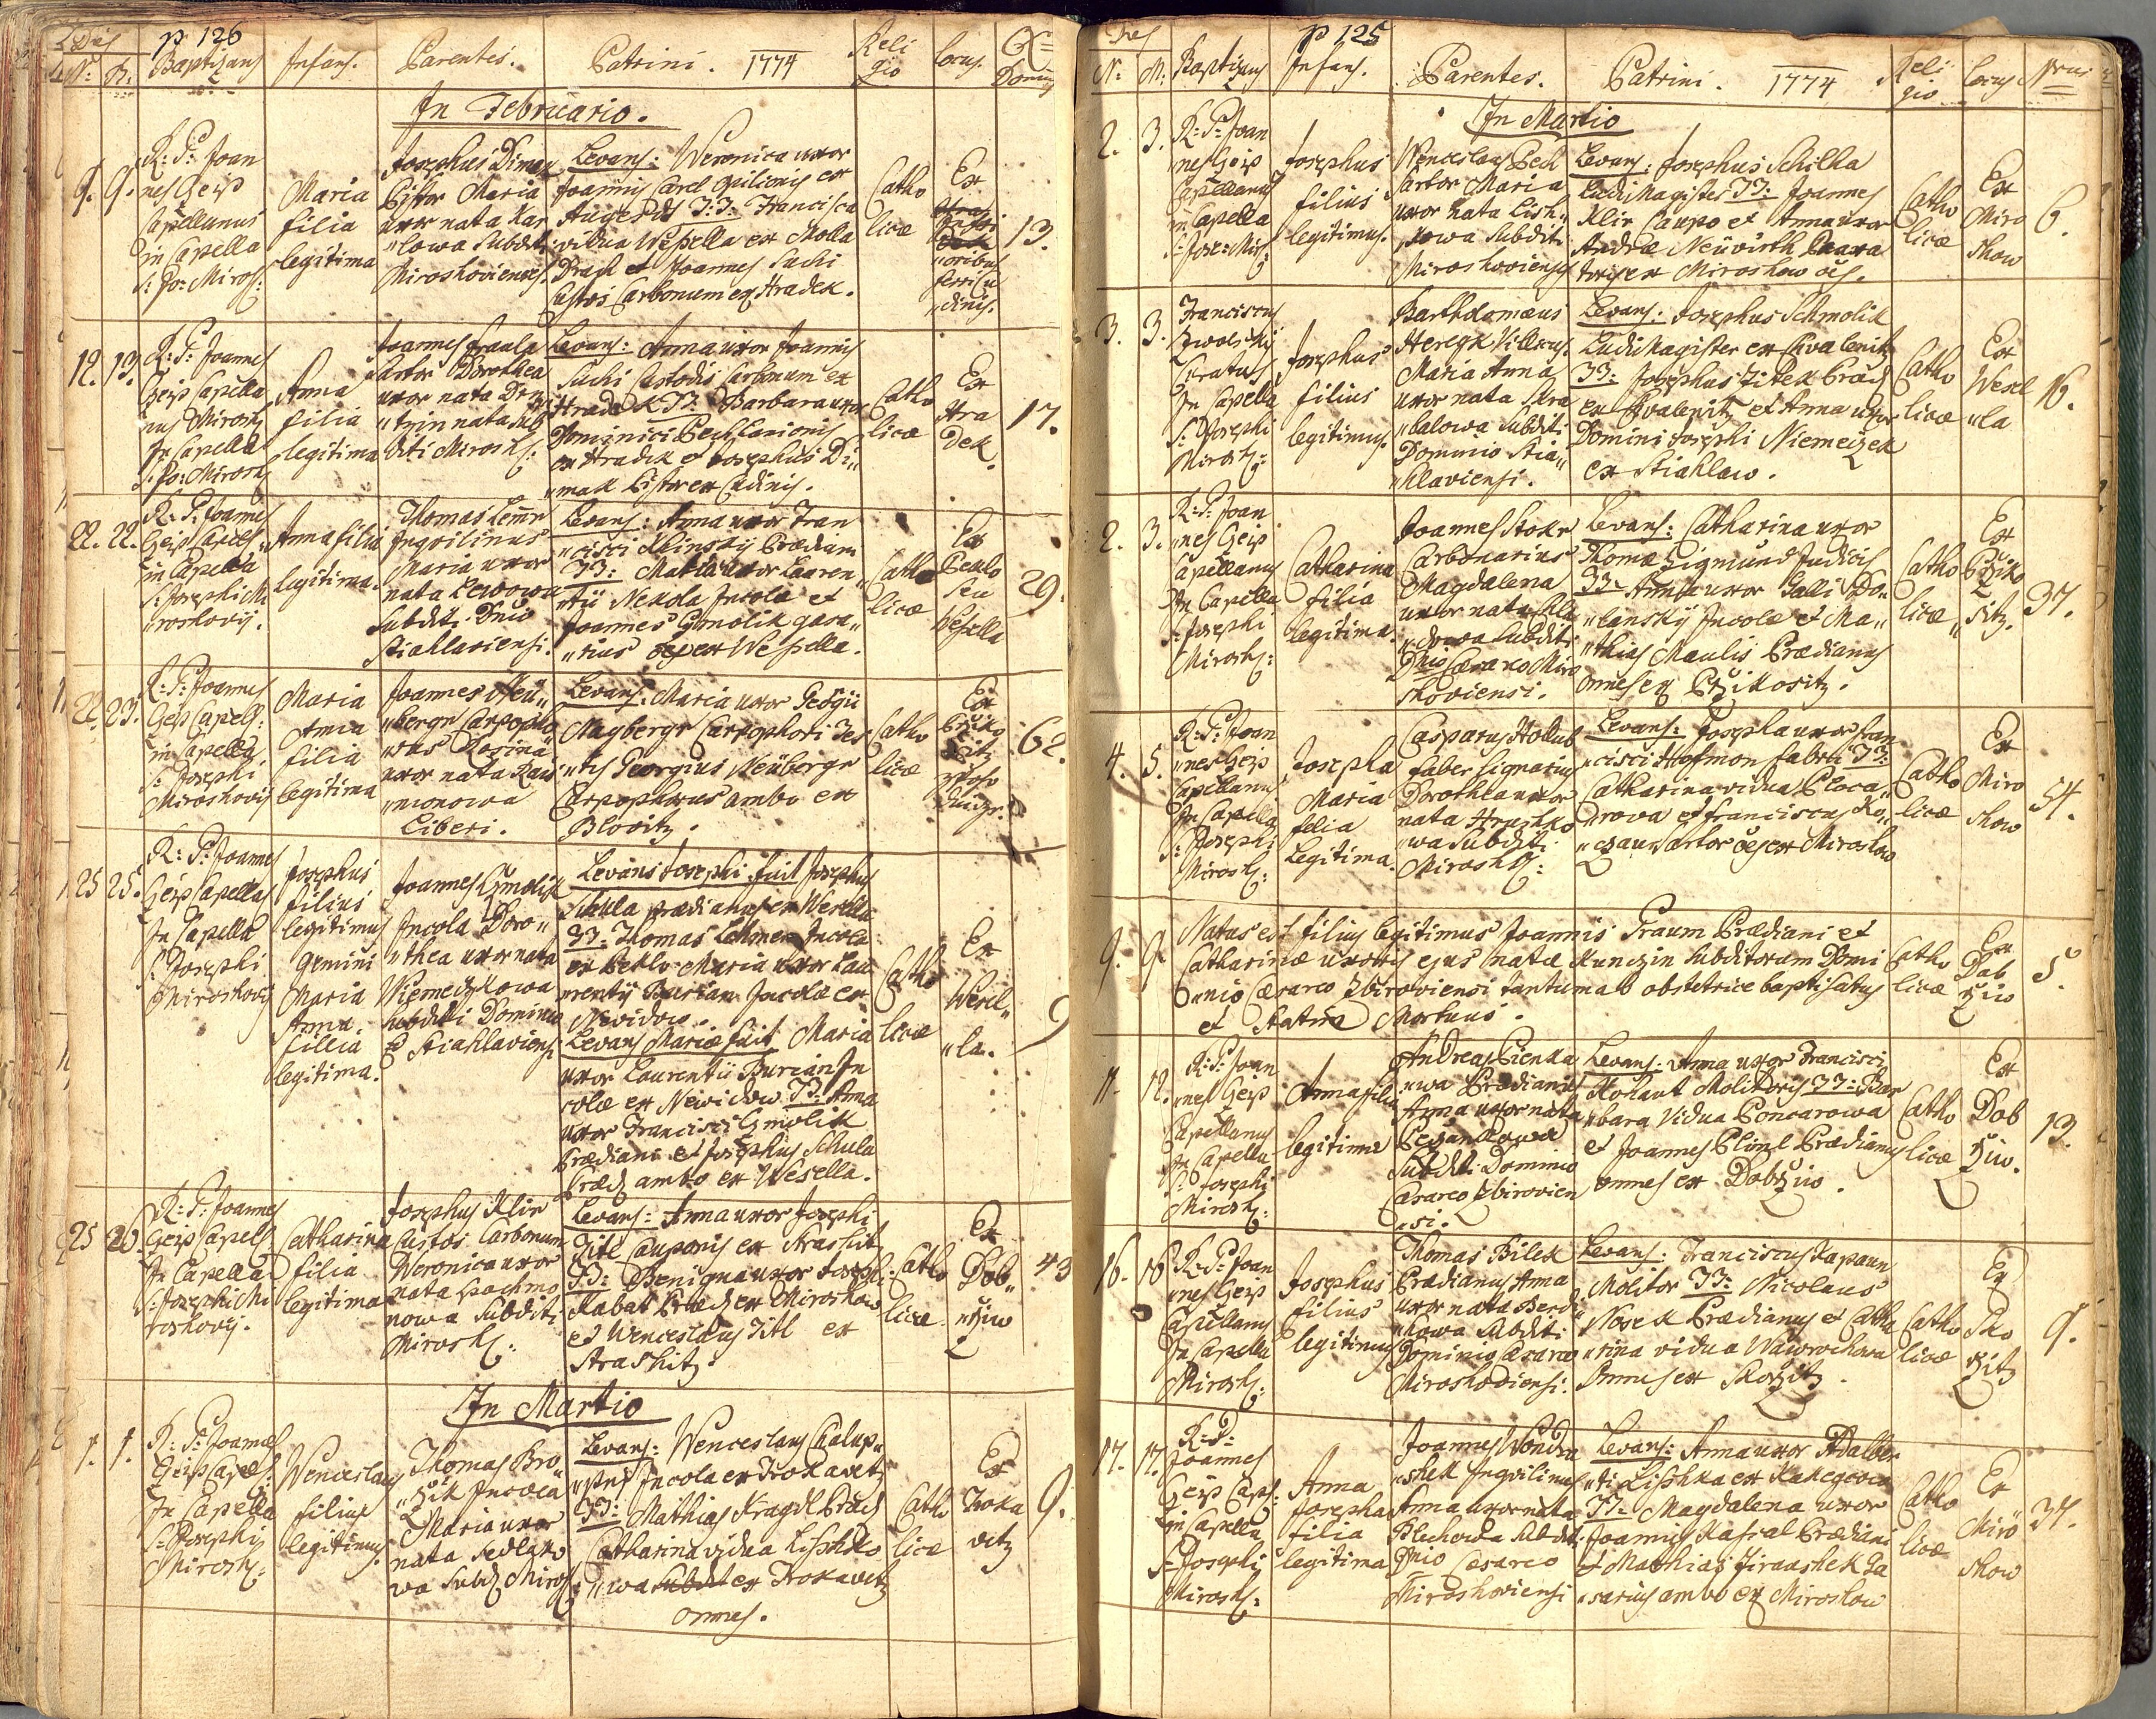 Dies
p 126
N: B: Baptizans Infans. Parentes. Patrini. 1774 Religio Locus. Domus
In Februario.
9. 9.
R: P: Joan
nes Geis
Capellanus
in Capella
S: Jo: Mirosh:
Maria
filia
legitima
Josephus Dimak
Pistor Maria
uxor nata Kar
"lowa Subditi
Miroshovienses.
Levans: Weronica uxor
Joannis Carel opilionis ex
TT: Francisca
vidua Wessella ex Molla
et Joannes Suchi
Custos Carbonum ex Hradek.
Catho
licæ
Ex
"dinis.
13.
12. 13.
R: P: Joannes
Geis Capella
nus Mirosh:
In Capella
S: Jo: Mirosh:
Anna
filia
legitima
Joannes Fraula
Sartor Dorothea
uxor nata
diti Mirosh:
Levans: Anna uxor Joannis
Suchi Custodis Carbonum ex
Hradek TT: Barbara uxor
Dominici Pech
ex Hradek et Josephus Di"
"mak Pistor ex
Catho
licæ
Ex
Hra
Dek.
17.
22. 22.
R: P: Joannes
Geis Capell
in Capella
S: Josephi Mi
"roshovij.
Anna filia
legitima.
Thomas
Inquilinus
Maria uxor
nata
Subditi Dnio
Stiahlaviensi.
Levans: Anna uxor Fran
"cisci Khinskij Prædiani
TT: Maria uxor Lauren"
"tii Nekola Incolæ et
Joannes Gmolik gaza"
"rius oes ex Wessella.
Catho
licæ
Ex
Peklo
seu
Wessella
29.
22. 23.
R: P: Joannes
Geis Capell:
in Capella
S: Josephi
Miroshovij
Maria
Anna
filia
legitima
Joannes Neü"
"bergr Carpopho
"rus Rosina
uxor nata Kais
"
Liberi.
Levans: Maria uxor Geogii
Naybergr Carpophori Tes
"tes Georgius Neübergr
Carpophorus ambo ex
Blovitz.
Catho
licæ
Ex
62.
25 25.
R: P: Joannes
Geis Capellas
In Capella
S: Josephi
Miroshovij
Josephus
filius
legitimus
Gemini
Maria
Anna
fillia
legitima.
Joannes Gmolik
Incola Doro"
"thea uxor nata
Niemetzkowa
Subditi Dominio
Stiahlaviensi
Levans Josephi fuit Josephus
Schula prædianus ex Wesella
TT: Thomas Lehmer Incola
ex Peklo Maria uxor Lau
"rentij Burian Incolæ ex
Nevidow.
Levans Mariæ fuit Maria
uxor Laurentii Burian In
colæ ex Nevidow TT: Anna
uxor Francisci Gmolik
Prædiani et Josephus Schula
Præd: ambo ex Wesella.
Catho
licæ
Ex
Wesel"
"la.
9
25 26
R: P: Joannes
Geis Capell
In Capella
S: Josephi Mi
roshovij.
Catharina
filia
legitima
Josephus Klir
Custos Carbonum
Weronica uxor
nata Pachmo
nowa Subditi
Mirosh:
Levans: Anna uxor Josephi
Titl Cauponis ex Strashitz
TT: Benigna uxor Josephi
Kabat Præd: ex Miroshow
et Wenceslaus Titl ex
Strashitz.
Catho
licæ
Ex
Dob"
"rziw
43
In Martio
1. 1.
R: P: Joannes
Geis Capel:
In Capella
S: Josephi
Mirosh:
Wenceslaus
filius
legitimus.
Thomas Bro"
"zik Incola
Maria uxor
nata Sedlako
wa Subd: Mirosh:
Levans: Wenceslaus Chalup"
Incola ex Trokavetz
TT: Mathias Kragdl Præd:
Catharina vidua Lishko
"wa ex Trokavetz
omnes.
Catho
licæ
Ex
Troka
vetz
9.
Dies
p 125
N: B: Baptizans Infans. Parentes. Patrini. 1774 Religio Locus Nrus
In Martio
2. 3.
R: P: Joan
nes Geis
Capellanus
in Capella
S: Jose: Mis:
Josephus
filius
legitimus.
Wenceslaus Pech
Sartor Maria
uxor nata Lish"
"kowa Subditi
Miroshovienses
Levans: Josephus Schilha
Ludi Magister TT: Joannes
Klir Caupo et Anna uxor
Andreæ Neüwirth
ex Miroshow oes.
Catho
licæ
Ex
Miro
show
6.
3. 3.
Franciscus
Curatus
In Capella
S: Josephi
Mirosh:
Josephus
filius
legitimus.
Bartholomæus
Heregk Villicus.
Maria Anna
uxor nata Skra
"balowa Subditi
Dominio Stia"
"hlaviensi.
Levans: Josephus Schmolik
Ludi Magister ex Chvalenitz
TT: Josephus Titek Præd
ex Kvalenitz et Anna uxor
Domini Josephi Niemeczek
ex Stiahlaw.
Catho
licæ
Ex
Wesel
"la
16.
2. 3.
R: P: Joan
"nes Geis
Capellanus
In Capella
S: Josephi
Mirosh:
Catharina
filia
legitima.
Joannes Stokr
Carbonarius
Magdalena
uxor nata
Subditi
Dnio Cæsareo Miro
shoviensi.
Levans: Catharina uxor
Thomæ Zigmund Judicis
TT: Anna uxor Galli Do"
"lansky Incolæ et Ma"
"thias Maulis Prædianus
omnes ex Przikositz.
Catho
licæ
Ex
Przikо
sitz.
37.
4. 5.
R: P: Joan
"nes Geis
Capellanus
In Capella
S: Josephi
Mirosh:
Josepha
Maria
filia
Legitima.
Casparus Hollub
faber lignarius
Dorothea uxor
nata Hrushko
"wa Subditi
Mirosh:
Levans: Josepha uxor Fran
"cisci Hofmon fabri TT:
Catharina vidua Ploca"
"rova et Franciscus Ko"
Sartor oes ex Miroshow
Catho
licæ
Ex
Miro
show
54.
9. 9
Natus est filius legitimus Joannis Traum Prædiani et
Catharinæ uxoris ejus natæ Kunczin Subditorum Domi
"nio Cæsareo Zbiroviensi tantum ab obstetrice baptisatus
et statim Mortuus.
Catho
licæ
Ex
Dob
rziw
5.
11. 12.
R: P: Joan
"nes Geis
Capellanus
In Capella
S: Josephi
Mirosh:
Anna filia
legitima
Andreas Pienka
"wa Prædianus
Anna uxor nata
Subditi Dominio
Cæsareo Zbirovien
"si.
Levans: Anna uxor Francisci
Kohaut Molitoris TT: Bar
"bara Vidua Poncarowa
et Joannes Prædianus
omnes ex Dobrziw.
Catho
licæ
Ex
Dob
rziw.
13.
16. 16
R: P: Joan
"nes Geis
Capellanus
In Capella
Mirosh:
Josephus
filius
legitimus
Thomas Bilek
Prædianus Anna
uxor nata
"kowa Subditi
Dominio Cæsareo
Miroshoviensi.
Levans: Franciscus Kapaun
Molitor TT: Nicolaus
Nosek Prædianus et Catha
"rina vidua Wawrochowa
Omnes ex Skorzitz.
Catho
licæ
Ex
Sko
rzitz
9.
17. 17.
R: P:
Joannes
Geis Cap:
in Capella
S: Josephi
Mirosh:
Anna
Josepha
filia
legitima
Joannes Wondra
"shek Inquilinus
Anna uxor nata
Blechowa Subditi
Dnio Cæsareo
Miroshoviensi
Levans: Anna uxor Adalber
"ti Lishka ex
TT: Magdalena uxor
Joannis Prædiani
et Mathias Jiraushek Ga
"zarius ambo ex Miroshow
Catho
licæ
Ex
Miro"
show
37.